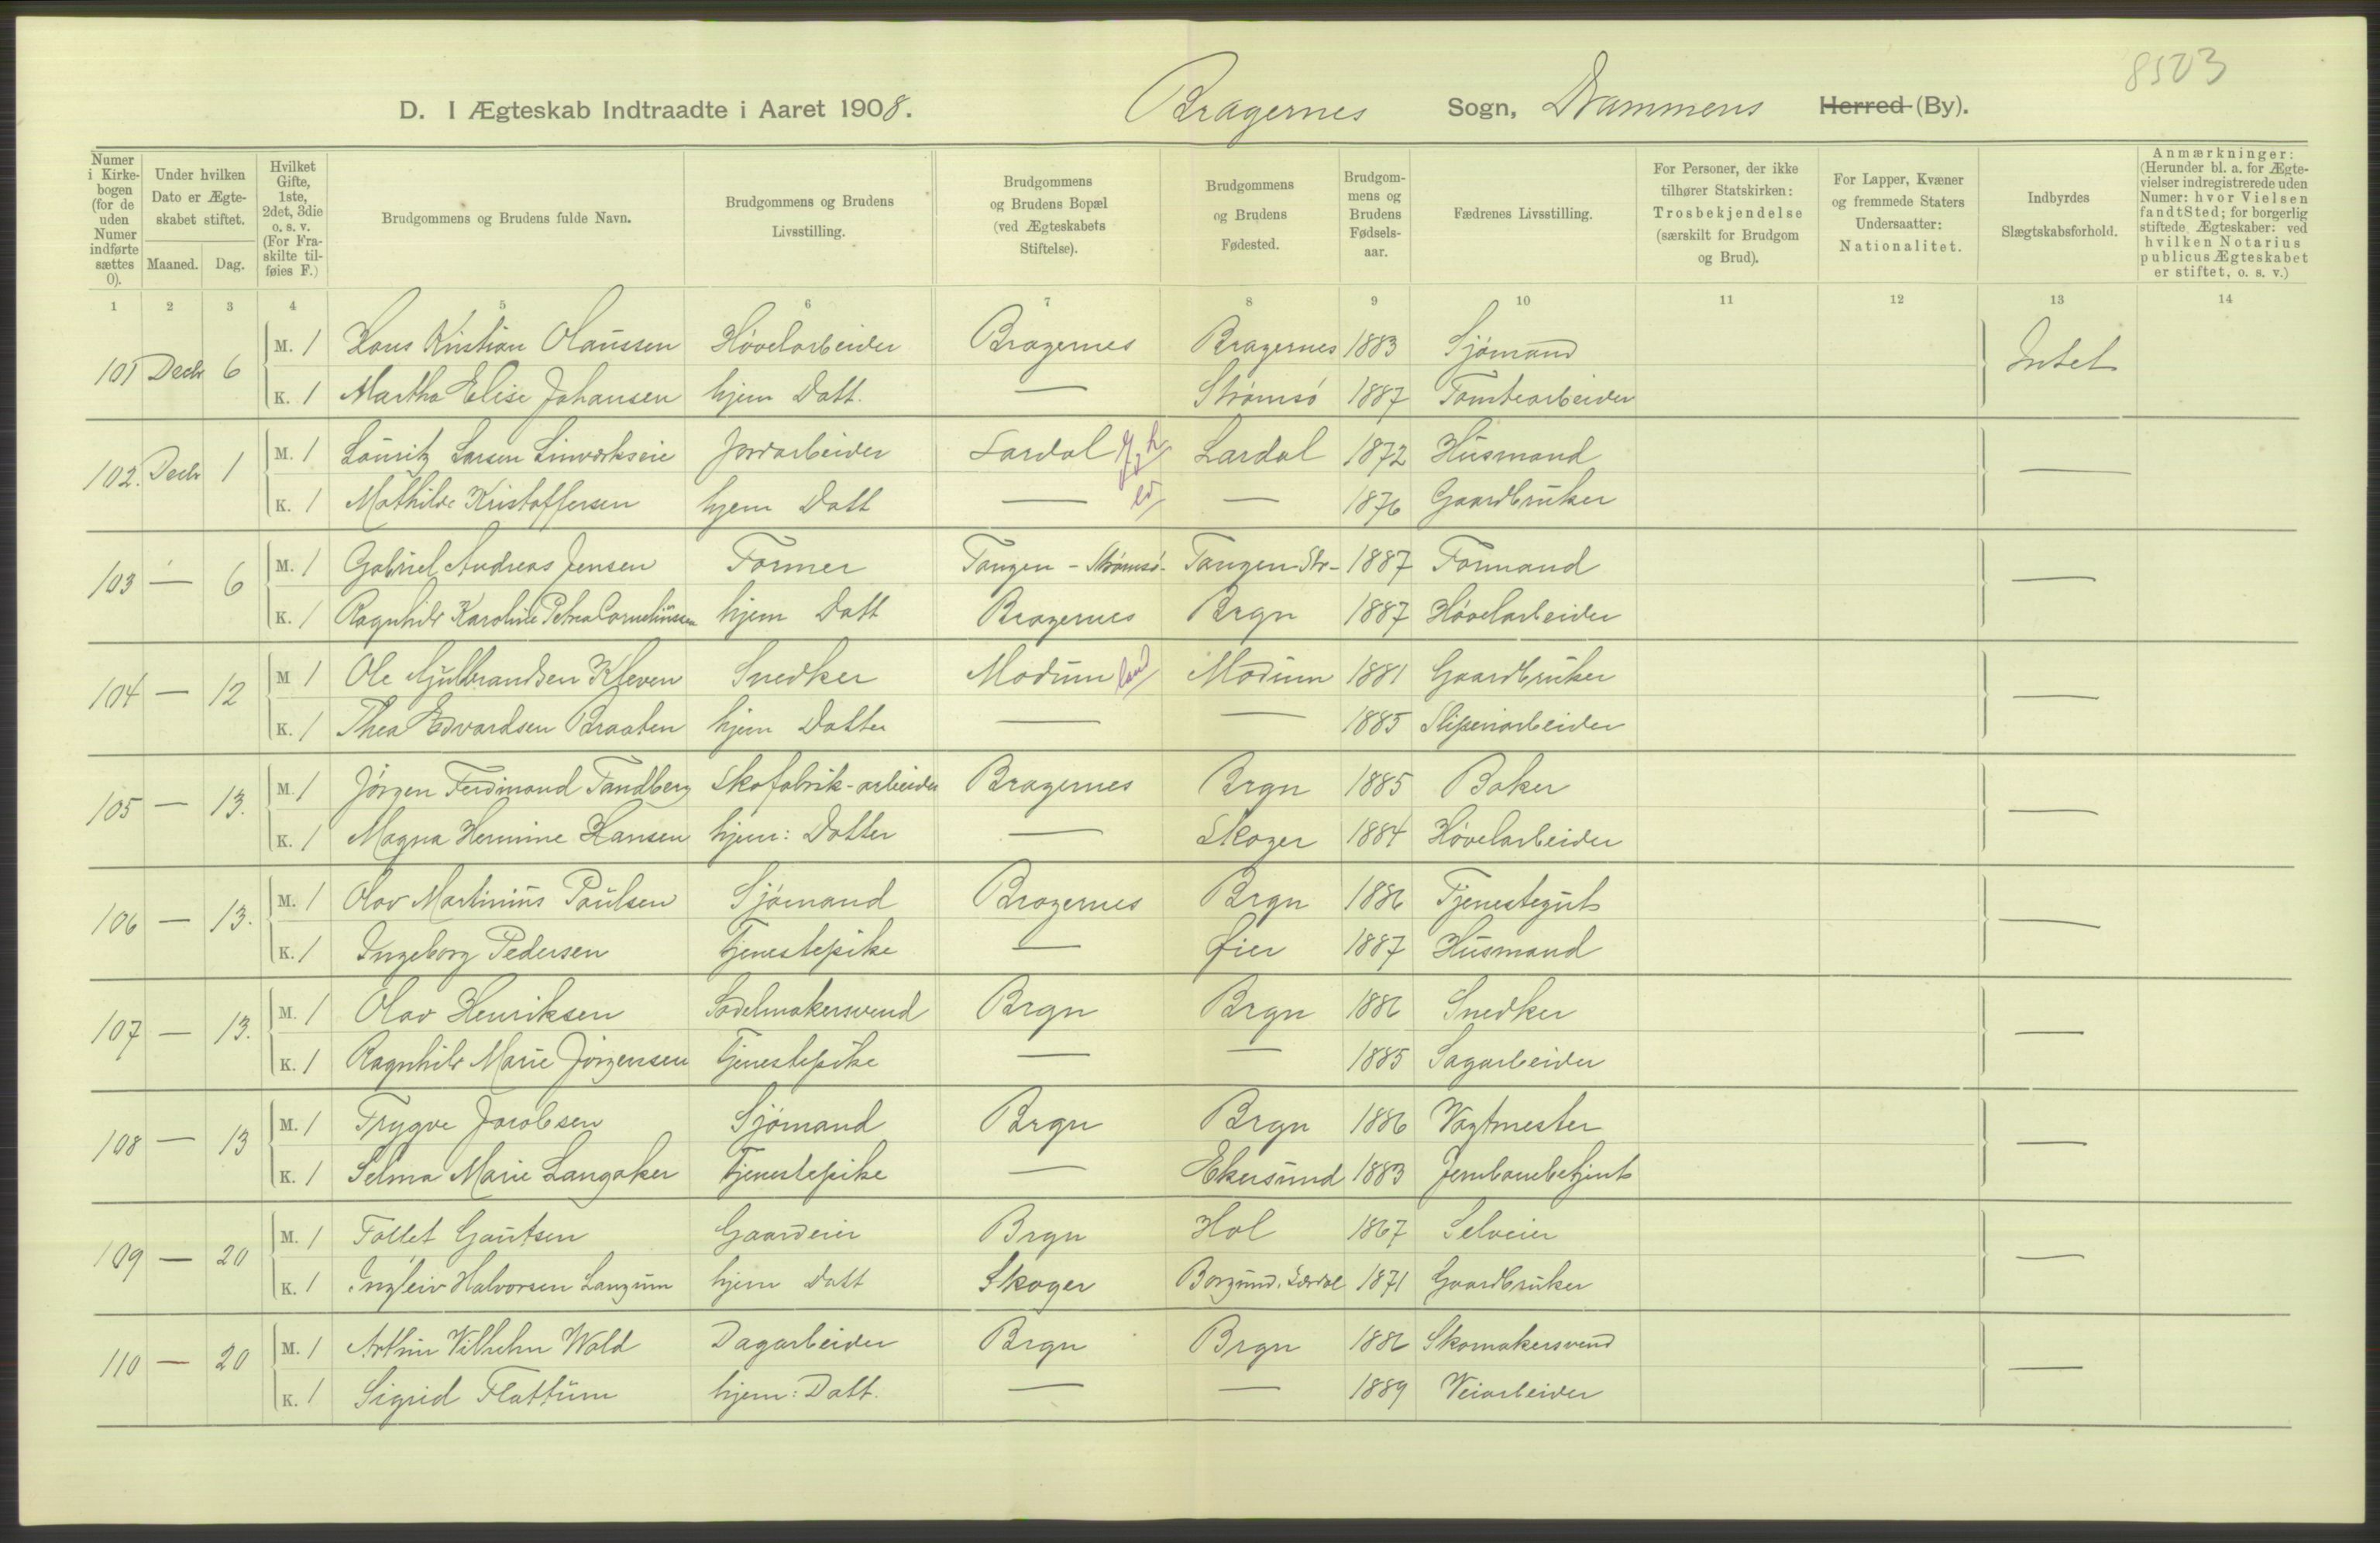 8503
D. I Ægteskab Indtraadte i Aaret 1908. Bragernes Sogn, Drammens Herred (By).
Numer i Kirkebogen (for de uden Numer indførte sættes 0).
Under hvilken Dato er Ægteskabet stiftet.
Maaned. Dag.
Hvilket Gifte, 1ste, 2det, 3die o. s. v. (For Fraskilte tilføies F.)
Brudgommens og Brudens fulde Navn.
Brudgommens og Brudens Livsstilling.
Brudgommens og Brudens Bopæl (ved Ægteskabets Stiftelse).
Brudgommens og Brudens Fødested.
Brudgommens og Brudens Fødselsaar.
Fædrenes Livsstilling.
For Personer, der ikke tilhører Statskirken: Trosbekjendelse (særskilt for Brudgom og Brud).
For Lapper, Kvæner og fremmede Staters Undersaatter: Nationalitet.
Indbyrdes Slægtskabsforhold.
Anmærkninger: (Herunder bl. a. for Ægtevielser indregistrerede uden Numer: hvor Vielsen fandt Sted; for borgerlig stiftede Ægteskaber: ved hvilken Notarius publicus Ægteskabet er stiftet, o. s. v.)
1 2 3 4 5 6 7 8 9 10 11 12 13 14
101 Decbr 6 M. 1 Hans Kristian Olaussen Høvelarbeider Bragernes Bragernes 1883 Sjømand Intet
K. 1 Martha Elise Johansen hjem Datt. — Strømsø 1887 Tomtearbeider
102. Decbr 1 M. 1 Lauritz Larsen Linværkseie Jordarbeider Lardal Lardal 1872 Husmand —
K. 1 Mathilde Kristoffersen hjem Datt — — 1876 Gaardbruker
103 — 6 M. 1 Gabriel Andreas Jensen Former Tangen - Strømsø - Tangen-Str- 1887 Formand —
K. 1 Ragnhild Karoline Petrea Corneliussen hjem Datt Bragernes Brgn 1887 Høvelarbeider
104 — 12 M 1 Ole Gulbrandsen Kleven Snedker Modum land Modum 1881 Gaardbruker —
K. 1 Thea Edvardsen Braaten hjem Datter — — 1885 Sliperiarbeider
105 — 13. M. 1 Jørgen Ferdinand Tandberg Skofabrik-arbeider Bragernes Brgn 1885 Baker —
K. 1 Magna Hermine Hansen hjem: Datter — Skoger 1884 Høvelarbeider
106 — 13. M. 1 Olav Martinius Paulsen Sjømand Bragernes Brgn 1886 Tjenestegut —
K. 1 Ingeborg Pedersen Tjenestepike — Øier 1887 Husmand
107 — 13. M. 1 Olav Henriksen Sadelmakersvend Brgn Brgn 1886 Snedker —
K. 1 Ragnhild Marie Jørgensen Tjenestepike — — 1885 Sagarbeider
108 — 13 M. 1 Trygve Jacobsen Sjømand Brgn Brgn 1886 Vagtmester —
K. 1 Selma Marie Langaker Tjenestepike — Ekersund 1883 Jernbanebetjent
109 — 20 M. 1 Tollef Gautsen Gaardeier Brgn Hol 1867 Selveier —
K. 1 Ingleiv Halvorsen Langum hjem Datt Skoger Borgund, Lærdal 1871 Gaardbruker
110 — 20 M. 1 Arthur Vilhelm Wold Dagarbeider Brgn Brgn 1886 Skomakersvend —
K. 1 Sigrid Flattum hjem: Datt. — — 1889 Veiarbeider